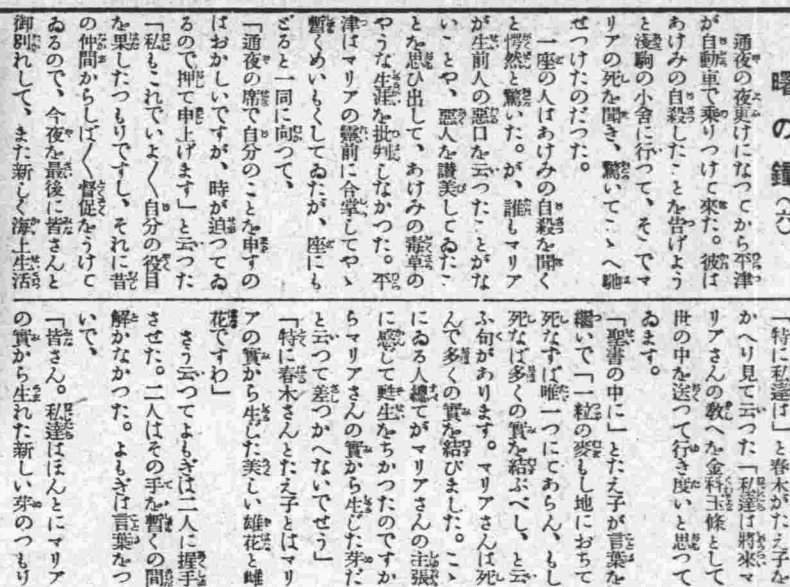 曙の鐘(六)
通夜の夜更けになつてから平津
が自動車で乘りつけて來た。彼は
あけみの自殺したことを告げよう
と淺駒の小舍に行つて、そこでマ
リアの死を聞き、驚いてこゝへ馳
せつけたのだつた。
一座の人はあけみの自殺を聞く
と愕然と驚いた。が、誰もマリア
が生前人の惡口を云つたことがな
いことや、惡人を讃美してゐたこ
とを思ひ出して、あけみの毒草の
やうな生涯を批判しなかつた。平
津はマリアの靈前に合掌してやゝ
暫くめいもくしてゐたが、座にも
どると一同に向つて、
「通夜の席で自分のことを申すの
はおかしいですが、時が迫つてゐ
るので押て申上げます」と云つた
「私もこれでいよ〱自分の役目
を果したつもりですし、それに昔
の仲間からしば〱督促をうけて
ゐるので、今夜を最後に皆さんと
御別れして、また新しく海上生活
「特に私達は」と春木がたえ子を
かへり見て云つた「私達は將來マ
リアさんの敎へを金科玉條として
世の中を送つて行き度いと思つて
ゐます。
「聖書の中に」とたえ子が言葉を
繼いで「一粒の麥もし地におちて
死なずば唯一つにてあらん、もし
死なば多くの實を結ぶべし、と云
ふ句があります。マリアさんは死
んで多くの實を結びました。こゝ
にゐる人總てがマリアさんの主張
に感じて甦生をちかつたのですか
らマリアさんの實から生じた芽だ
と云つて差つかへないでせう」
「特に春木さんとたえ子とはマリ
アの實から生じた美しい雄花と雌
花ですわ」
さう云つてよもぎは二人に握手
させた。二人はその手を暫くの間
解かなかつた。よもぎは言葉をつ
いで、
「皆さん。私達はほんとにマリア
の實から生れた新しい芽のつもり